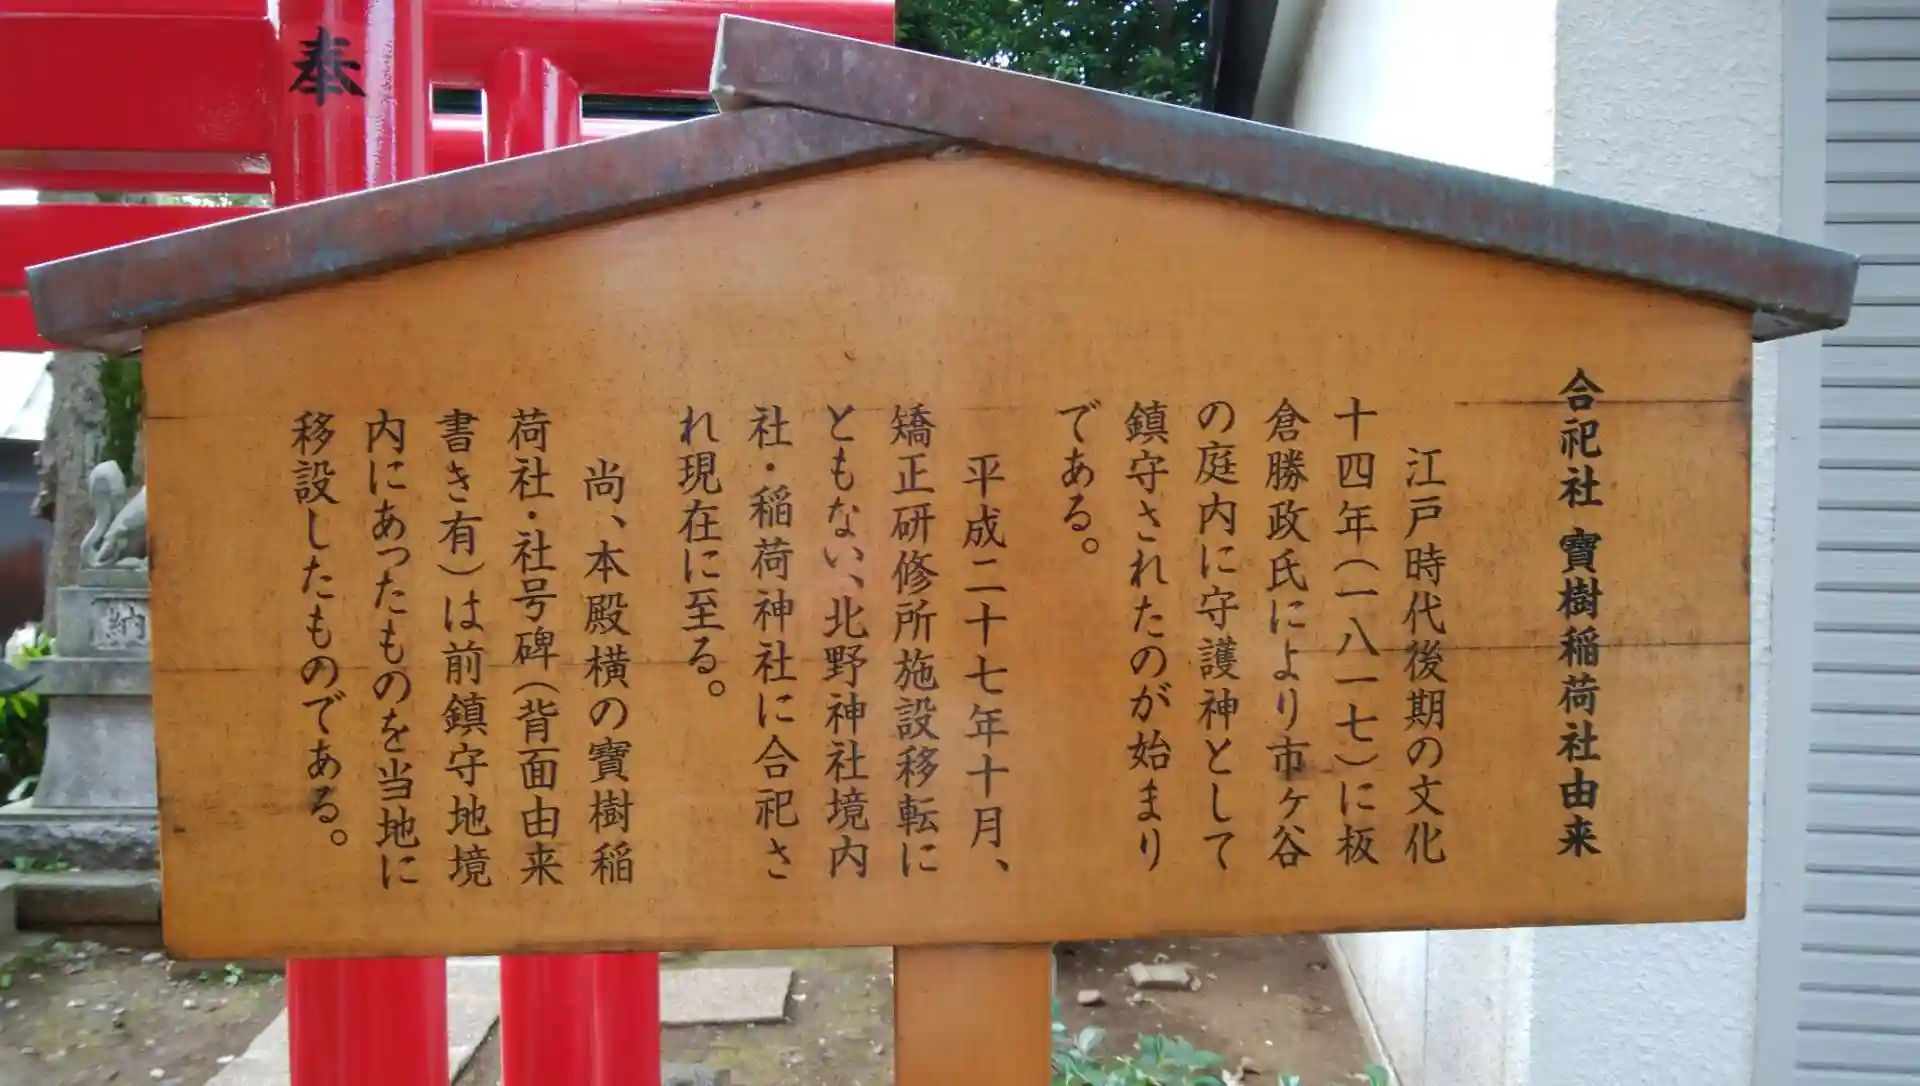 合祀社 寶樹稲荷社由来
江戸時代後期の文化
十四年(一八一七)に板
倉勝政氏により市ヶ谷
の庭内に守護神として
鎮守されたのが始まり
である。
平成二十七年十月、
矯正研修所施設移転に
ともない、北野神社境内
社・稲荷神社に合祀さ
れ現在に至る。
尚、本殿横の寶樹稲
荷社・社号碑(背面由来
書き有)は前鎮守地境
内にあったものを当地に
移設したものである。
奉
納